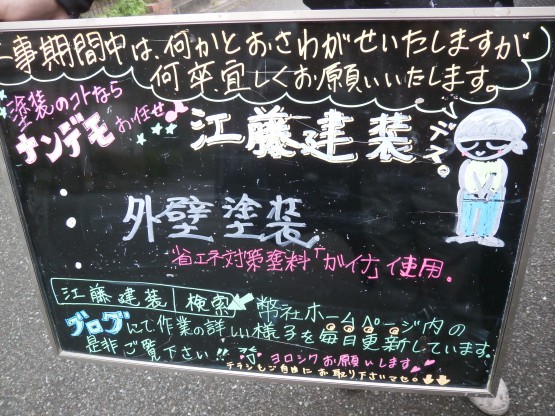 工事期間中は、何かとおさわがせいたしますが
何卒、宜しくお願いいたします。
塗装のコトなら
ナンデモお任せ♪
江藤建装
デス。
外壁塗装
省エネ対策塗料「ガイナ」使用。
江藤建装 検索
幣社ホームページ内の
ブログにて作業の詳しい様子を毎日更新しています。
是非ご覧下さい!!
ヨロシクお願いします
チラシもご自由にお取り下さいませ。